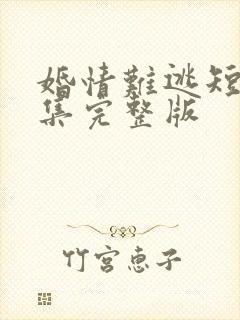 婚情難逃短
集完整版
竹宮惠子